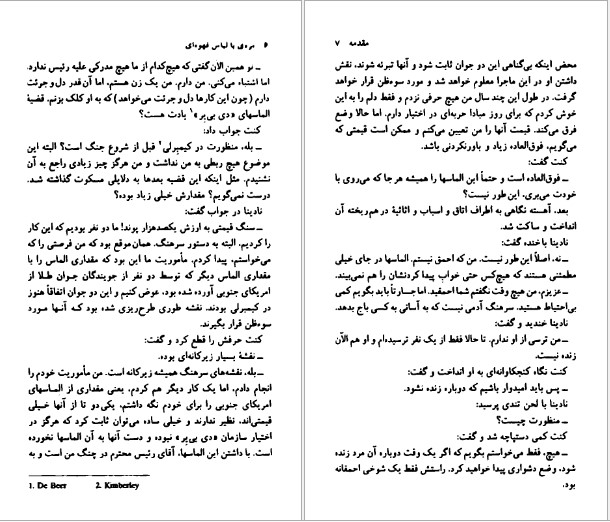 ۶ مردی با لباس قهوه‌ای
ــ تو همین الان گفتی که هیچ‌کدام از ما هیچ مدرکی علیه رئیس ندارد.
اما اشتباه می‌کنی. من دارم. من یک زن هستم، اما آن‌قدر دل و جرئت
دارم (چون این کارها دل و جرئت می‌خواهد) که به او کلک بزنم. قضیهٔ
الماسهای «دی بی‌یر»¹ یادت هست؟
کنت جواب داد:
ــ بله، منظورت در کیمبرلی² قبل از شروع جنگ است؟ البته این
موضوع هیچ ربطی به من نداشت و من هرگز چیز زیادی راجع به آن
نشنیدم. مثل اینکه این قضیه بعدها به دلایلی مسکوت گذاشته شد.
درست نمی‌گویم؟ مقدارش خیلی زیاد بود؟
نادینا در جواب گفت:
ــ سنگ قیمتی به ارزش یکصدهزار پوند! ما دو نفر بودیم که این کار
را کردیم. البته به دستور سرهنگ. همان‌موقع بود که من فرصتی را که
می‌خواستم، پیدا کردم. مأموریت ما این بود که مقداری الماس را با
مقداری الماس دیگر که توسط دو نفر از جویندگان جوان طلا از
امریکای جنوبی آورده شده بود، عوض کنیم و این دو جوان اتفاقاً هنوز
در کیمبرلی بودند. نقشه طوری طرح‌ریزی شده بود که آنها مورد
سوءظن قرار بگیرند.
کنت حرفش را قطع کرد و گفت:
ــ نقشهٔ بسیار زیرکانه‌ای بوده.
ــ بله، نقشه‌های سرهنگ همیشه زیرکانه است. من مأموریت خودم را
انجام دادم، اما یک کار دیگر هم کردم. یعنی مقداری از الماسهای
امریکای جنوبی را برای خودم نگه داشتم. یکی دو تا از آنها خیلی
قیمتی‌اند، نظیر ندارند و خیلی ساده می‌توان ثابت کرد که هرگز در
اختیار سازمان «دی بی‌یر» نبوده و دست آنها به آن الماسها نخورده
است. با داشتن این الماسها، آقای رئیس محترم در چنگ من است و به
1. De Beer 2. Kimberley
مقدمه ۷
محض اینکه بی‌گناهی این دو جوان ثابت شود و آنها تبرئه شوند، نقش
داشتن او در این ماجرا معلوم خواهد شد و مورد سوءظن قرار خواهد
گرفت. در طول این چند سال من هیچ حرفی نزدم و فقط دلم را به این
خوش کردم که برای روز مبادا حربه‌ای در اختیار دارم. اما حالا وضع
فرق می‌کند. قیمت آنها را من تعیین می‌کنم و ممکن است قیمتی که
می‌گویم، فوق‌العاده زیاد و باورنکردنی باشد.
کنت گفت:
ــ فوق‌العاده است و حتماً این الماسها را همیشه هر جا که می‌روی با
خودت می‌بری. این‌طور نیست؟
بعد، آهسته نگاهی به اطراف اتاق و اسباب و اثاثیهٔ در هم ریخته آن
انداخت و ساکت شد.
نادینا با خنده گفت:
ــ نه، اصلاً این‌طور نیست. من که احمق نیستم. الماسها در جای خیلی
مطمئنی هستند که هیچ‌کس حتی خواب پیدا کردنشان را هم نمی‌بیند.
ــ عزیزم، من هیچ وقت نگفتم شما احمقید. اما جسارتاً باید بگویم کمی
بی‌احتیاط هستید. سرهنگ آدمی نیست که به آسانی به کسی باج بدهد.
نادینا خندید و گفت:
ــ من ترسی از او ندارم. تا حالا فقط از یک نفر ترسیده‌ام و او هم الآن
زنده نیست.
کنت نگاه کنجکاوانه‌ای به او انداخت و گفت:
ــ پس باید امیدوار باشیم که دوباره زنده نشود.
نادینا با لحن تندی پرسید:
ــ منظورت چیست؟
کنت کمی دستپاچه شد و گفت:
ــ هیچ، فقط می‌خواستم بگویم که اگر یک وقت دوباره آن مرد زنده
شود، وضع دشواری پیدا خواهید کرد. راستش فقط یک شوخی احمقانه
بود.